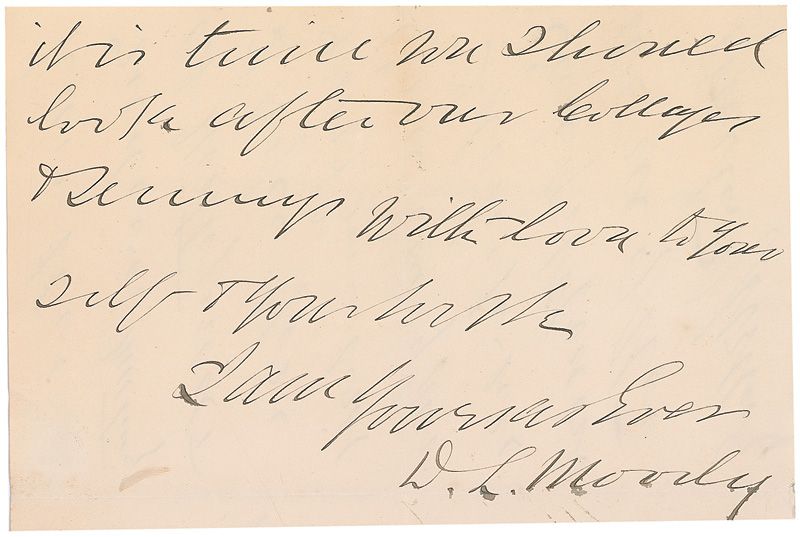 it is time we should
look after our Colleges
&
With love to your
self & your
I am Yours as Ever
D. L. Moody